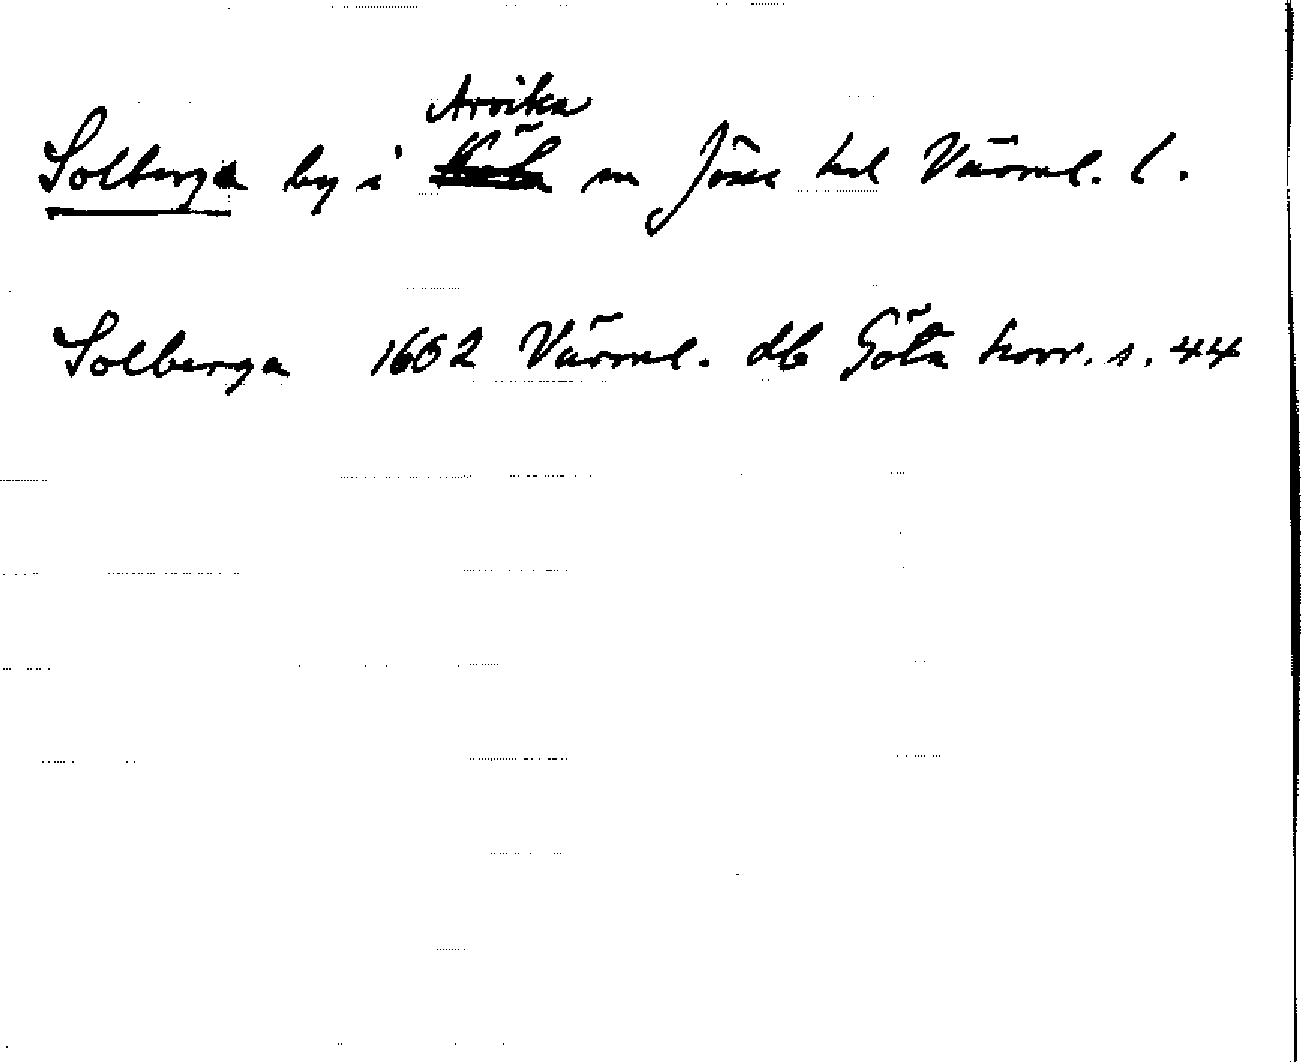 Arvika
Solberga by i sn Jösse hd Värml. l.
Solberga 1602 Värml. db Göta hovr. s. 44